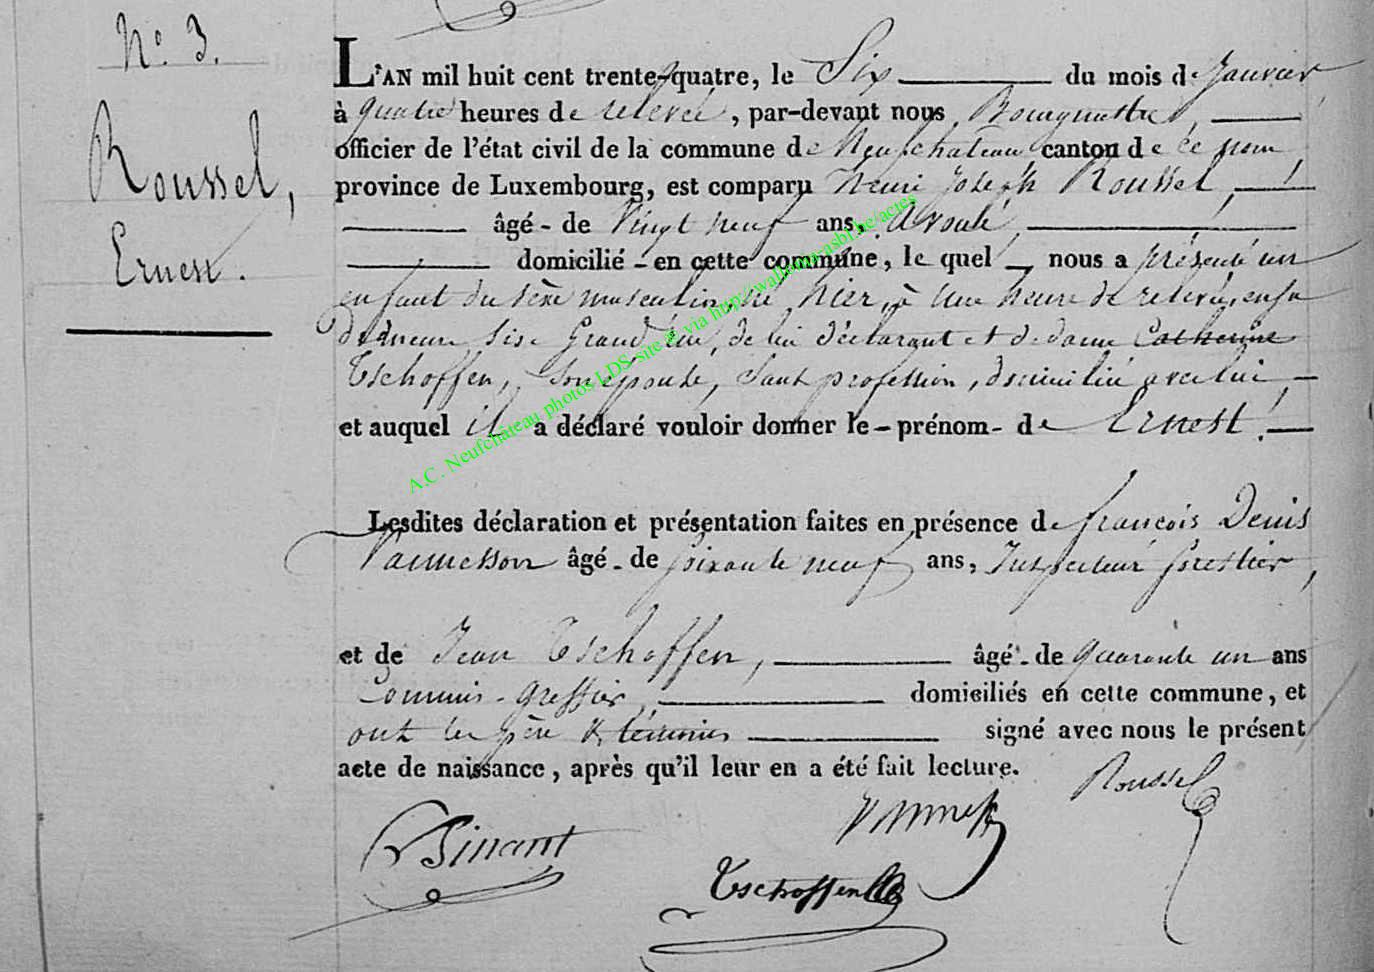 N° 3.
Roussel,
Ernest.
L'AN mil huit cent trente-quatre, le Six du mois de Janvier
à quatre heures de relevée, par-devant nous Bourgmestre,
officier de l'état civil de la commune de Neufchateau canton de ce nom,
province de Luxembourg, est comparu henri Joseph Roussel,
âgé - de Vingt neuf ans, Avoué,
domicilié - en cette commune, le quel nous a présenté un
enfant du sexe masculin, né hier, à Une heure de relevée, en sa
demeure sise Grand' rue, de lui déclarant et de dame Catherine
Tschoffen, son épouse, sans profession, domiciliée avec lui,
et auquel il a déclaré vouloir donner le - prénom - de Ernest.
Lesdites déclaration et présentation faites en présence de françois Denis
Vannesson âgé - de soixante neuf ans, Inspecteur forestier,
et de Jean Tschoffen, âgé - de quarante un ans
Commis-greffier, domiciliés en cette commune, et
ont les père & témoins signé avec nous le présent
acte de naissance, après qu'il leur en a été fait lecture.
Roussel
Tschoffen
A.C. Neufchâteau photos LDS site @ via http://wallonia-asbl.be/actes